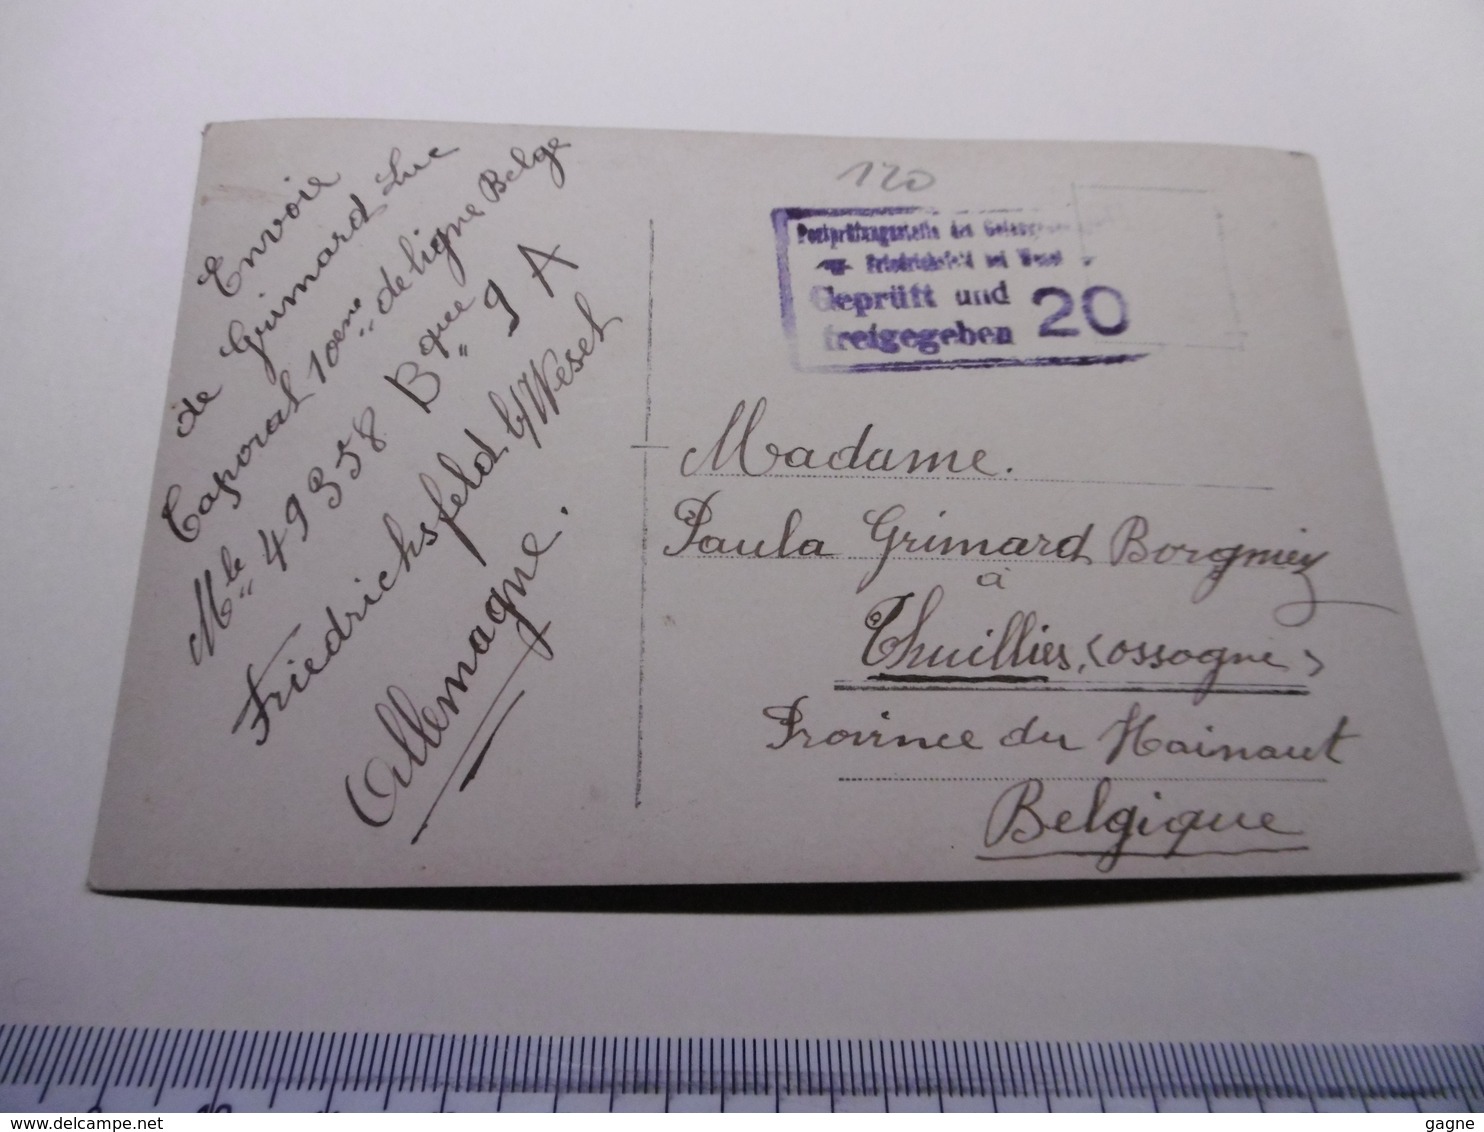 Envoie
de Grimard Luc
Caporal 10ème de ligne Belge
Mle 49358 Bque 9 A
Friedrichsfeld b/Wesel
Allemagne.
120
Postprüfungsstelle des
Friedrichsfeld bei Wesel
Geprüft und
freigegeben 20
Madame.
Paula Grimard Borgniez
à
Thuillies, (Ossogne)
Province du Hainaut
Belgique
delcampe.net
gagne